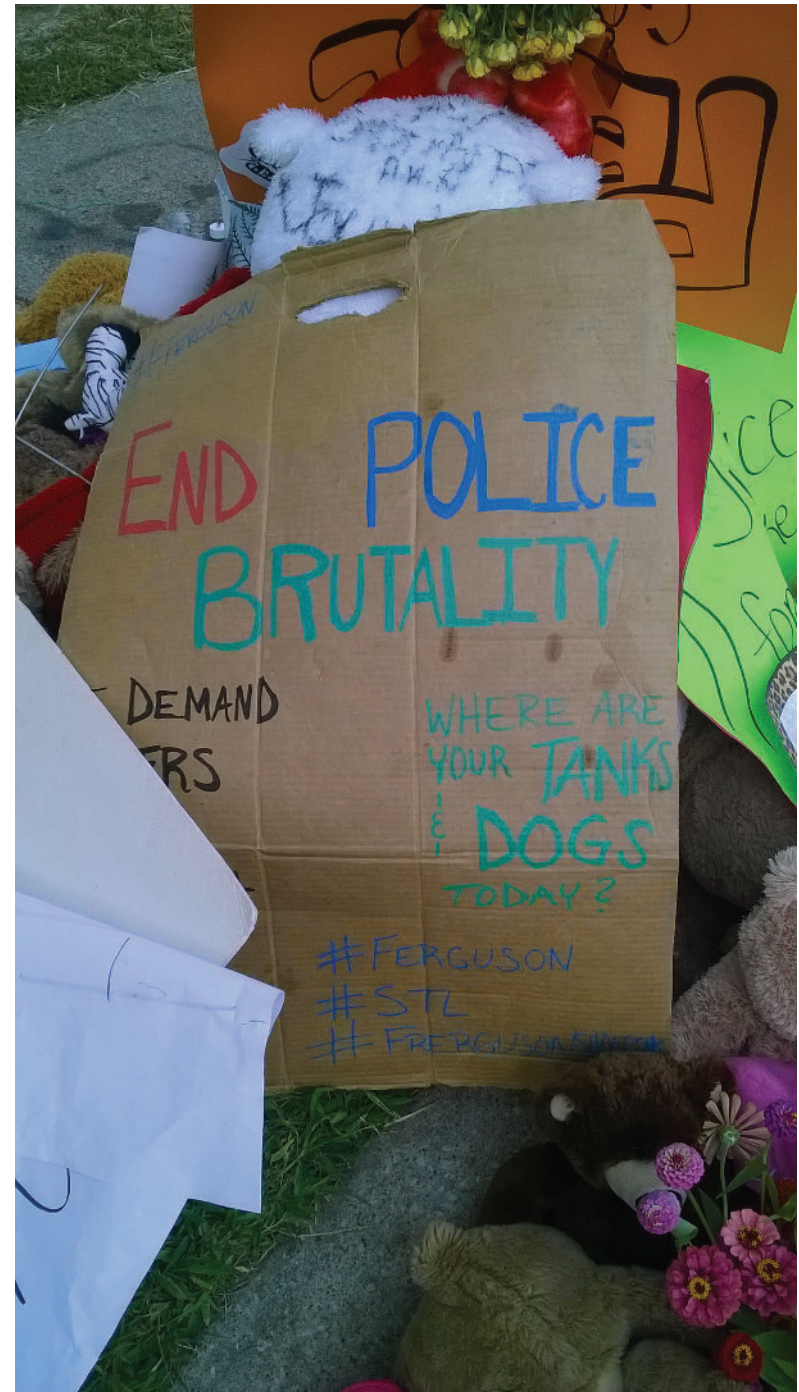 #FERGUSON
END POLICE
BRUTALITY
DEMAND
ERS
WHERE ARE
YOUR TANKS
&
DOGS
TODAY?
#FERGUSON
#STL
tice
for